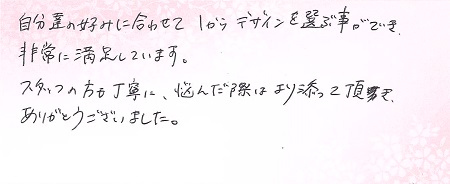 自分達の好みに合わせて 1から デザインを選ぶ事ができ、
非常に満足しています。
スタッフの方も丁寧に、悩んだ際は より添って頂き、
ありがとうございました。